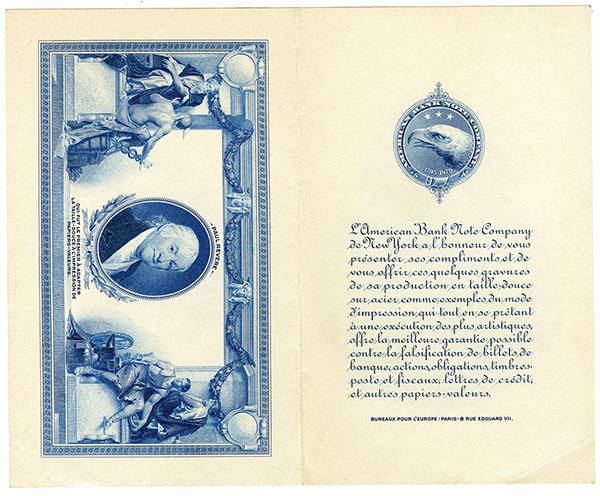 PAUL REVERE,
QUI FUT LE PREMIER À ADAPTER
LA TAILLE-DOUCE À L'IMPRESSION DE
PAPIERS-VALEURS.
AMERICAN BANK NOTE COMPANY
1795-1879
L'American Bank Note Company
de New York a l'honneur de vous
présenter ses compliments et de
vous offrir ces quelques gravures
de sa production en taille douce
sur acier comme exemples du mode
d'impression qui tout en se prêtant
à une exécution des plus artistiques,
offre la meilleure garantie possible
contre la falsification de billets de
banque, actions, obligations, timbres-
poste et fiscaux, lettres de crédit,
et autres papiers-valeurs.
BUREAUX POUR L'EUROPE: PARIS-8 RUE EDOUARD VII.